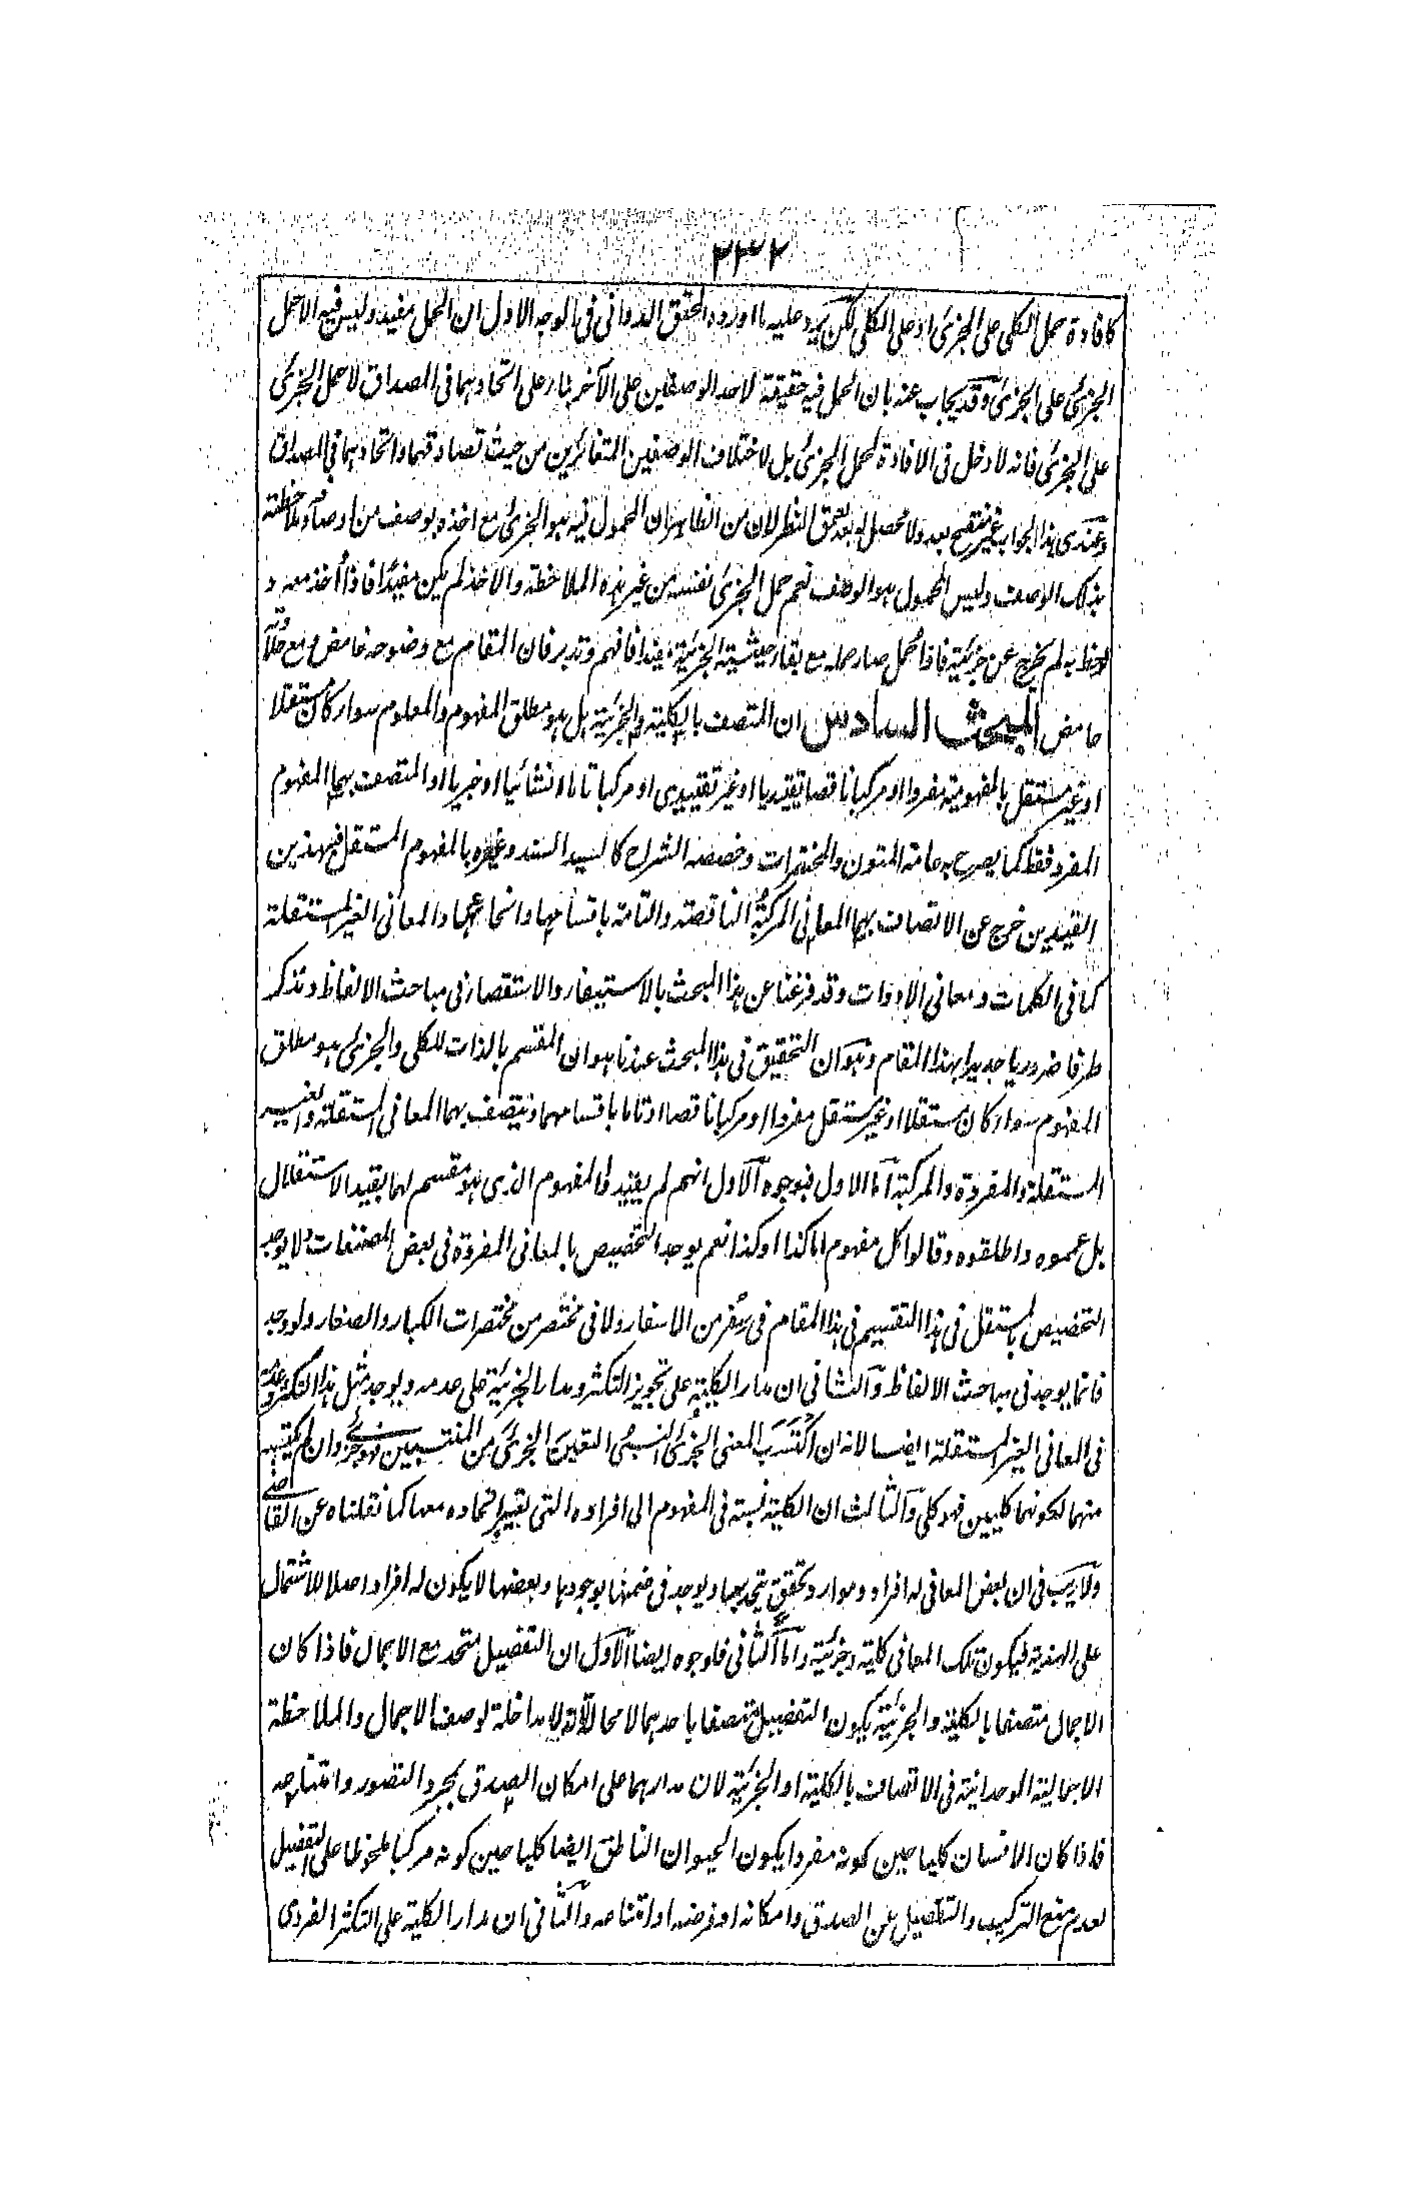 ٢٣٢
كافادة حمل الكلى على الجزئى او على الكلى لكن يرد عليه ما اورده المحقق الدوانى فى الوجه الاول ان الحمل مفيد وليس فيه الا حمل
الجزئى على الجزئى وقد يجاب عنه بان الحمل فيه حقيقة لاحد الوصفين على الآخر بناء على اتحادهما فى المصداق لا حمل الجزئى
على الجزئى فانه لا دخل فى الافادة لحمل الجزئى بل لاختلاف الوصفين المتغائرين من حيث تصادقهما واتحادهما فى المصداق
وعندى هذا الجواب غير منقح بعد ولا محصل له بعد تعمق النظر لان من الظاهر ان المحمول فيه هو الجزئى مع اخذه بوصف من اوصافه وملاحظته
بذلك الوصف وليس المحمول هو الوصف نعم حمل الجزئى نفسه من غير هذه الملاحظة والاخذ لم يكن مفيدا فاذا أخذ معه و
لوحظ به لم يخرج عن جزئيته فاذا حمل صار حمله مع بقاء حيثية الجزئية مفيدا فافهم وتدبر فان المقام مع وضوحه غامض ومع
حامض المبحث السادس ان المتصف بالكلية والجزئية هل هو مطلق المفهوم والمعلوم سواء كان مستقلا
او غير مستقل بالمفهومية مفردا او مركبا ناقصا تقييديا او غير تقييدى او مركبا تاما انشائيا او خبريا او المتصف بهما المفهوم
المفرد فقط كما يصرح به عامة المتون والمختصرات وخصصه الشراح كالسيد السند وغيره بالمفهوم المستقل فبهذين
القيدين خرج عن الاتصاف بهما المعانى المركبة الناقصة والتامة باقسامها وانحائها والمعانى الغير المستقلة
كما فى الكلمات ومعانى الادوات وقد فرغنا عن هذا المبحث بالاستيفاء والاستقصاء فى مباحث الالفاظ ونذكر
طرفا ضروريا جديدا بهذا المقام وهو ان التحقيق فى هذا المبحث عندنا هو ان المقسم بالذات للكلى والجزئى هو مطلق
المفهوم سواء كان مستقلا او غير مستقل مفردا او مركبا ناقصا او تاما باقسامهما فيتصف بهما المعانى المستقلة والغير
المستقلة والمفردة والمركبة اما الاول فبوجوه الاول انهم لم يقيدوا المفهوم الذى هو مقسم لهما بقيد الاستقلال
بل عمموه واطلقوه وقالوا كل مفهوم اما كذا او كذا نعم يوجد التخصيص بالمعانى المفردة فى بعض المصنفات ولا يوجد
التخصيص بالمستقل فى هذا التقسيم فى هذا المقام فى سفر من الاسفار ولا فى مختصر من مختصرات الكبار والصغار ولو وجد
فانما يوجد فى مباحث الالفاظ والثانى ان مدار الكلية على تجويز التكثر ومدار الجزئية على عدمه ويوجد مثل هذا التكثر وعدمه
فى المعانى الغير المستقلة ايضا لانه ان اكتسب المعنى الجزئى النسبى التعين الجزئى من المنتسبين فهو جزئى وان لم يكتسبه
منهما لكونهما كليين فهو كلى والثالث ان الكلية نسبة فى المفهوم الى افراده التى يعتبر اتحاده معها كما نقلناه عن القاضى
ولا ريب فى ان بعض المعانى له افراد وموارد تحقق يتحد بها ويوجد فى ضمنها بوجودها وبعضها لا يكون له افراد اصلا للاشتمال
على الهذية فيكون تلك المعانى كلية وجزئية واما الثانى فلوجوه ايضا الاول ان التفصيل متحد مع الاجمال فاذا كان
الاجمال متصفا بالكلية والجزئية يكون التفصيل متصفا باحدهما لا محالة لانه لا مداخلة لوصف الاجمال والملاحظة
الاجمالية الوحدانية فى الاتصاف بالكلية او الجزئية لان مدارهما على امكان الصدق بمجرد التصور وامتناعه
فاذا كان الانسان كليا حين كونه مفردا يكون الحيوان الناطق ايضا كليا حين كونه مركبا ملحوظا على التفصيل
لعدم منع التركيب والتفصيل عن الصدق وامكانه او فرضه او امتناعه والثانى ان مدار الكلية على التكثر الفردى